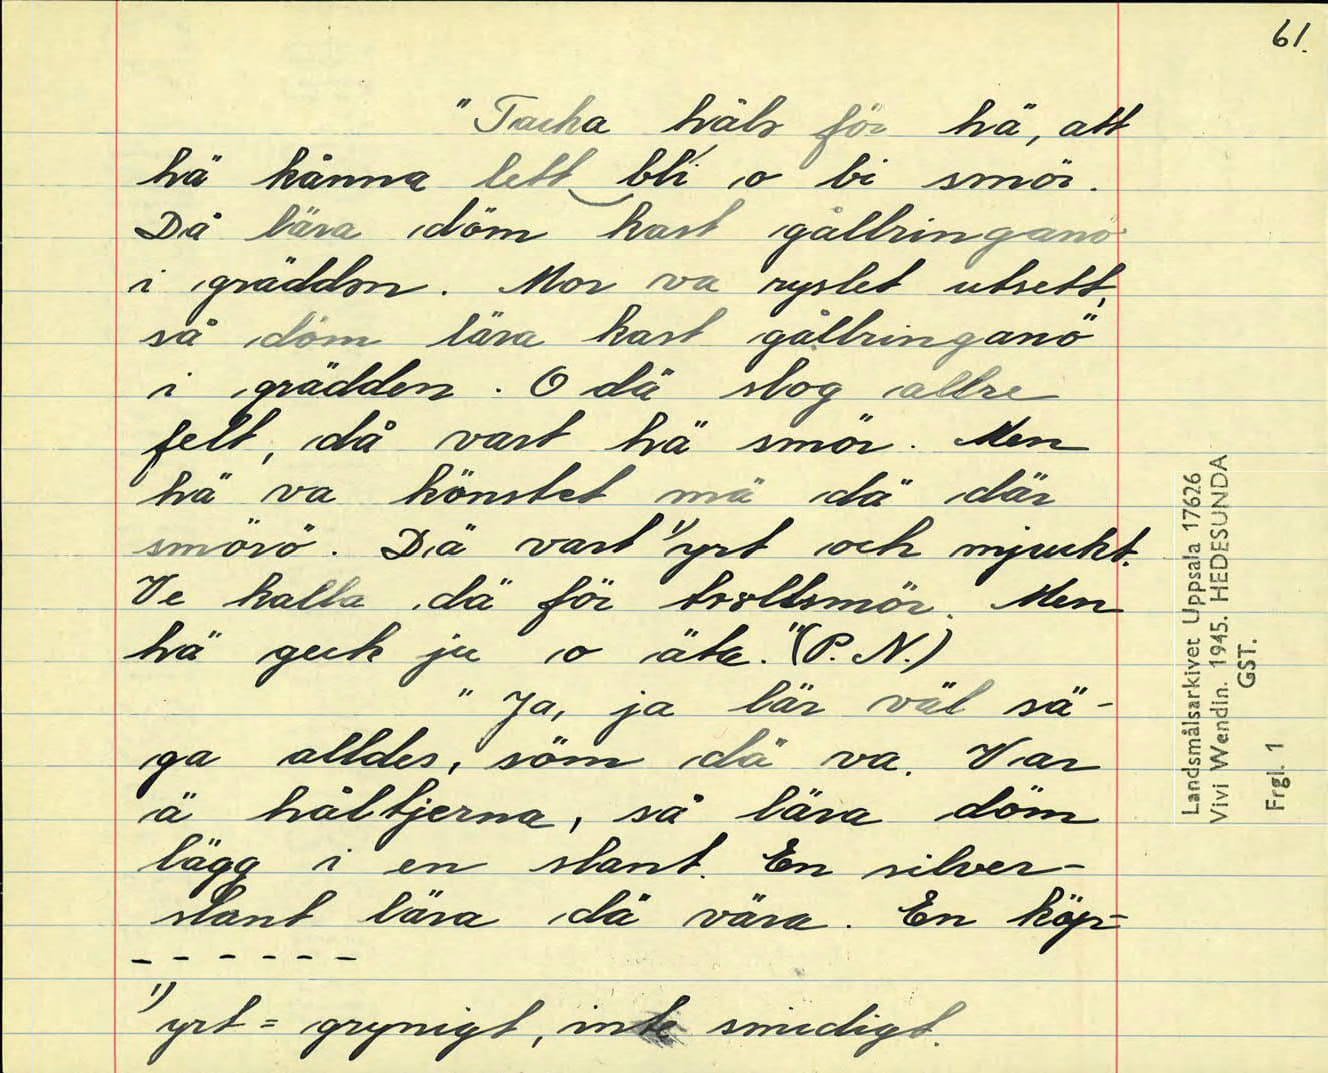 61.
"Tacka håls för hä, att
hä kånna lett bli o bi smör.
Då lära döm kast gållringanö
i gräddon. Mor va ryslet utsett,
så döm lära kast gållringanö
i grädden. O dä slog allre
felt, då vart hä smör. Men
hä va könstet mä dä där
smörö. Dä vart ¹⁾yrt och mjuckt.
Ve kalla dä för trollsmör. Men
hä geck ju o äta." (P. N.)
"Ja, ja lär väl sä-
ga alldes, söm dä va. Var
ä hål tjerna, så lära döm
lägg i en slant. En silver-
slant lära dä vära. En köp-
- - - - - -
¹⁾yrt = grynigt, inte smidigt.
Landsmålsarkivet Uppsala 17626
Vivi Wendin. 1945. HEDESUNDA
GST.
Frgl. 1